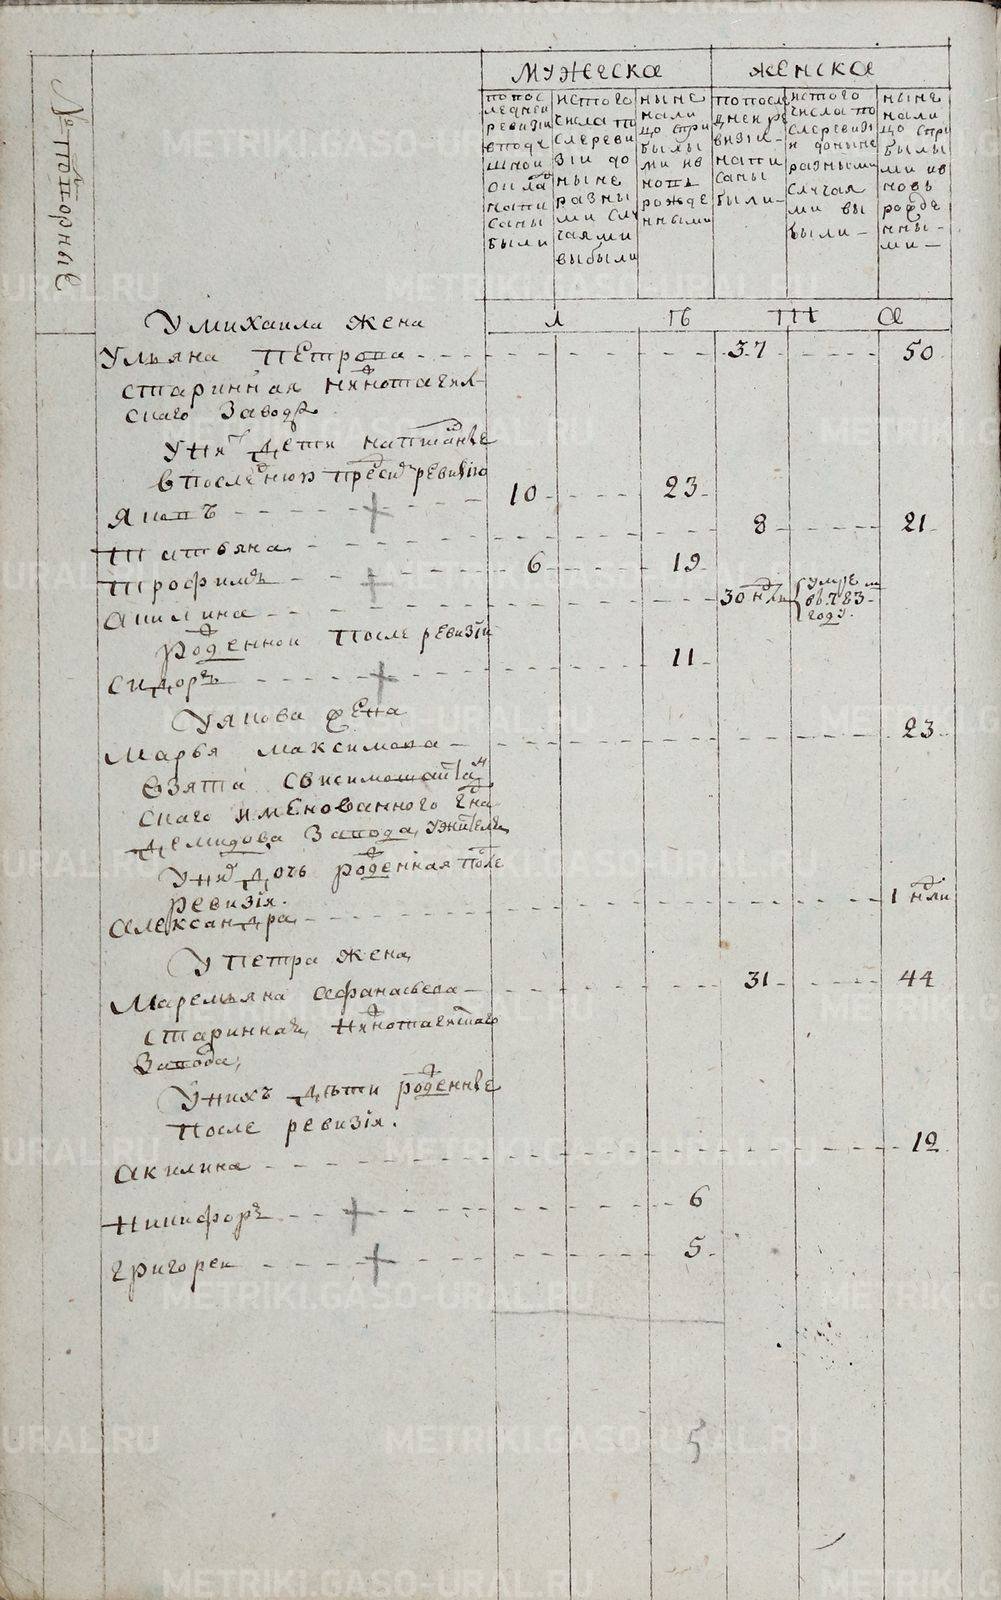 № повторные
Мужеска
Женска
попос
ледней
ревизiи
вподу
шной
окла
напи
саны
были
истого
числа по
слереви
зiи до
ныне
разны
ми слу
чаями
выбыли
ныне
нали
цо при
былы
ми ив
новь
рожде
нными
попосл
днеи ре
визiи
напи
саны
были
истого
числа по
слеревизi
и доныне
разными
случая
ми вы
были
ныне
нали
цо при
былы
ми ив
новь
рожде
нны
ми
Умихаила жена
л
тв
т
а
Ульяна Петрова 37 50
старинная нижнотагил
скаго завода
Уних дети написанные
впоследнюю пред ревизiю
Яковъ 10 23
Татьяна 8 21
Трофимъ 6 19
Акилина 30 ндли умре
в 1783
году.
рожденной после ревизiи
Сидоръ 11
Уякова жена
Марья Максимова 23
взята
скаго именованного гдна
Демидова завода, ужители
Уних дочь рожденная после
ревизiя.
Александра 1 ндли
Упетра жена
Маремьяна Афанасьева 31 44
старинная, нижнотагилскаго
завода,
Унихъ дѣти рожденные
после ревизiя.
Акилина 12
Никифоръ 6
Григореи 5
5
METRIKI.GASO-URAL.RU